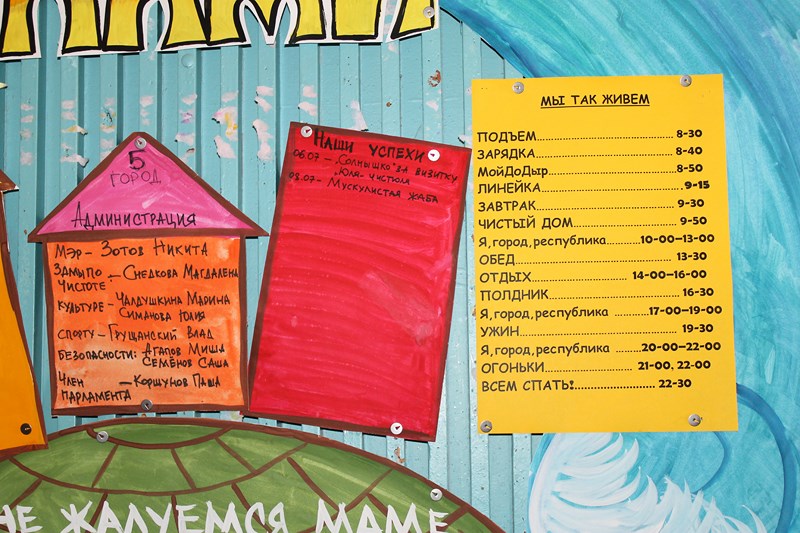 5
ГОРОД
Администрация
Мэр – Зотов Никита
Замы по – Снедкова Магдалена
чистоте
культуре – Чалдушкина Марина
Симанова Юлия
спорту – Грущанский Влад
безопасности: Агапов Миша
Семёнов Саша
Член – Коршунов Паша
парламента
Наши успехи
06.07 – "Солнышко" за визитку
"Юля – чистюля"
08.07 – Мускулистая жаба
МЫ ТАК ЖИВЕМ
ПОДЪЕМ 8-30
ЗАРЯДКА 8-40
МойДоДыр 8-50
ЛИНЕЙКА 9-15
ЗАВТРАК 9-30
ЧИСТЫЙ ДОМ 9-50
Я,город,республика 10-00–13-00
ОБЕД 13-30
ОТДЫХ 14-00–16-00
ПОЛДНИК 16-30
Я,город,республика 17-00–19-00
УЖИН 19-30
Я,город,республика 20-00–22-00
ОГОНЬКИ 21-00, 22-00
ВСЕМ СПАТЬ! 22-30
НЕ ЖАЛУЕМСЯ МАМЕ